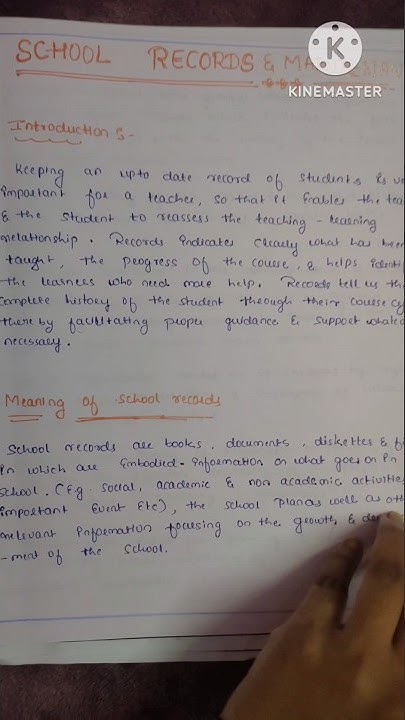 SCHOOL RECORDS & MA
KINEMASTER
Introduction :-
Keeping an upto date record of students is
important for a teacher, so that it enables the
& the student to reassess the teaching - learning
relationship. Records indicates clearly what has been
taught, the progress of the course, & helps
the learners who need more help. Records tell us the
complete history of the student through their course
there by facilitating proper guidance & support
necessary.
Meaning of school records
School records are books, documents, diskettes &
in which are embodied information on what goes on in
school. (Eg. social, academic & non academic
important Event Etc), the school plan as well as
relevant information focusing on the growth &
-ment of the school.